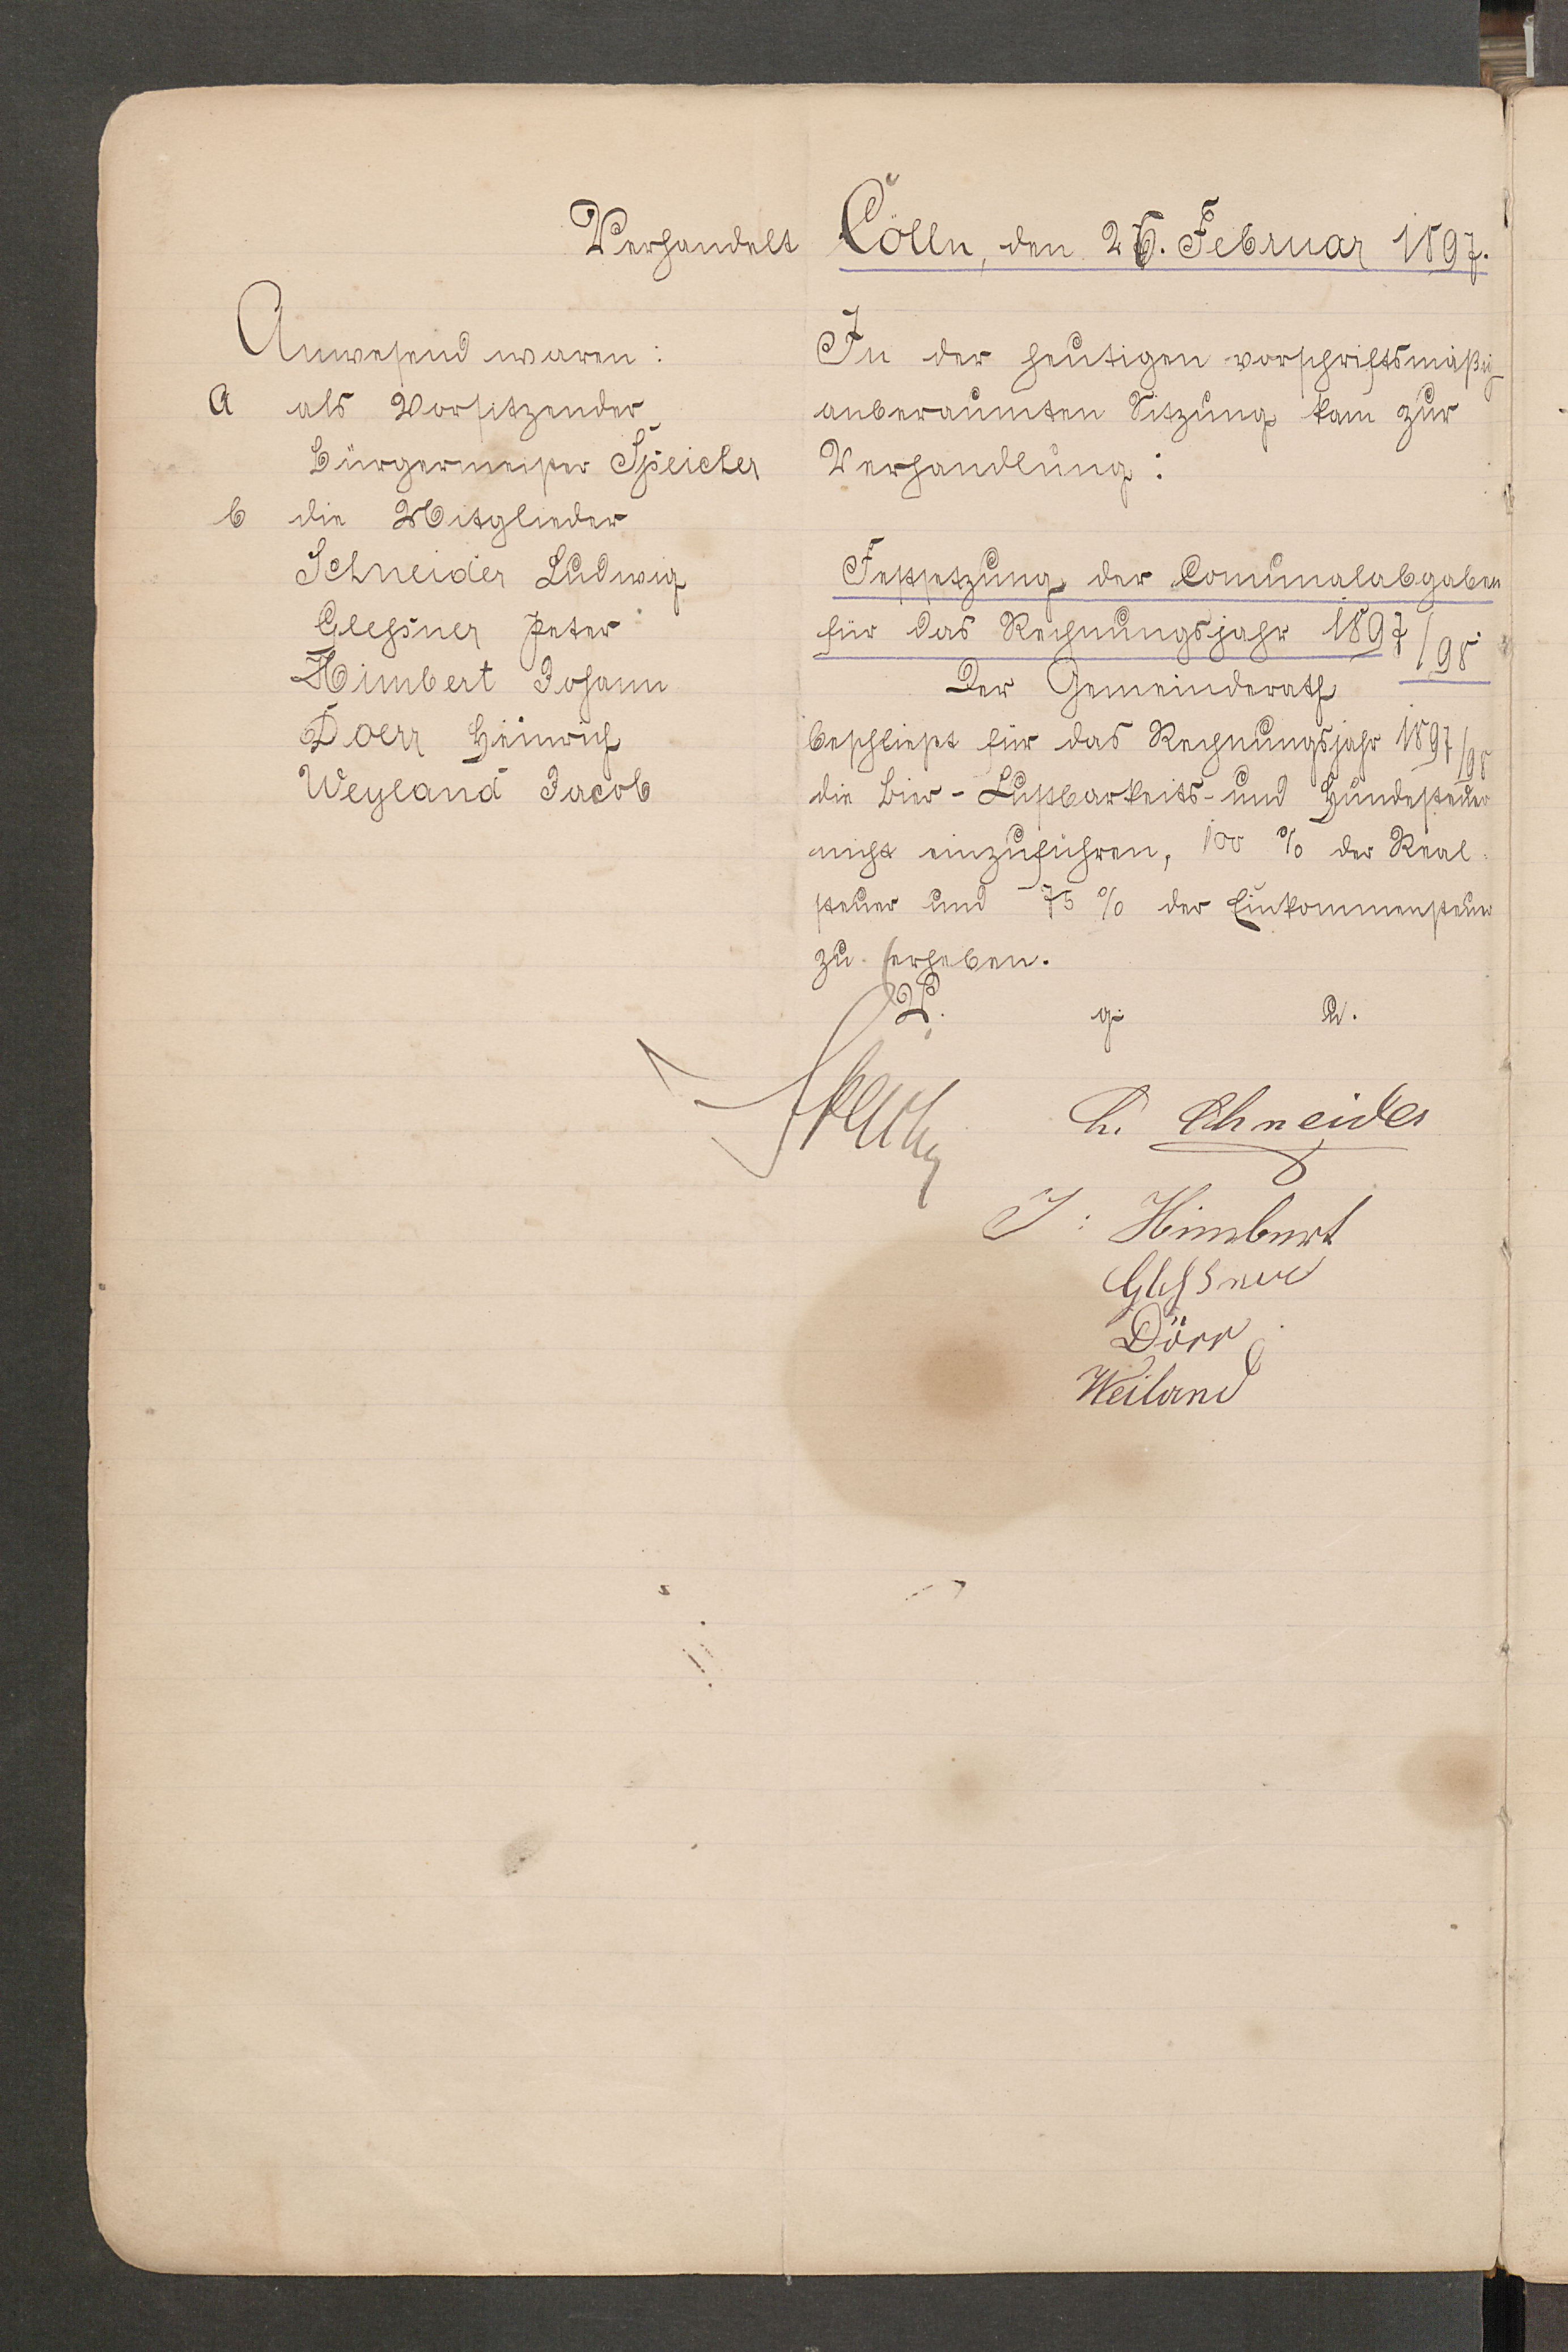 Verhandelt Cölln, den 26. Februar 1897.
Anwesend waren:
a als Vorsitzender
Bürgermeister Speicher
b die Mitglieder
Schneider Ludwig
Glessner Peter
Himbert Johann
Doerr Heinrich
Weyland Jacob
In der heutigen vorschriftsmäßig
anberaumten Sitzung kam zur
Verhandlung:
Festsetzung der Comunalabgaben
für das Rechnungsjahr 1897/98
Der Gemeinderath
beschließt für das Rechnungsjahr 1897/98
die Bier- Lustbarkeits- und Hundesteuer
nicht einzuführen, 100 % der Real-
steuer und 75 % der Einkommensteuer
zu erheben.
V. g. u.
Speicher
L. Schneider
J: Himbert
Glessner
Dörr
Weiland